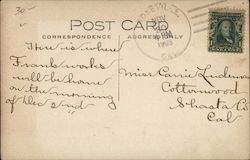 30-
POST CARD
CORRESPONDENCE
ADDRESS ONLY
NOV
PM
1908
CAL.
Here is where
Frank works
will be home
on the morning
of the 2nd
Miss Carrie
Cottonwood
Shasta Co
Cal